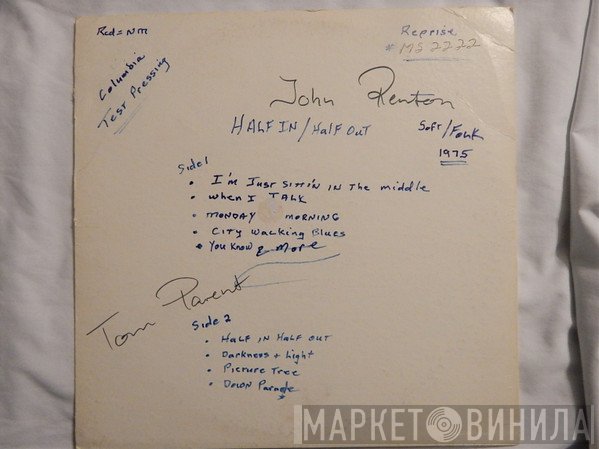 Rcd = NM
Reprise
# MS 2222
Columbia
Test Pressing
John Renton
HALF IN / Half OUT
Soft/Folk
1975
Side 1
• I'm Just SITTIN IN The middle
• when I TALK
• MONDAY MORNING
• CITY Walking Blues
• You Know & More
Tom Parent
Side 2
• HALF IN HALF OUT
• Darkness + Light
• Picture Tree
• Down Parade
МАРКЕТ ВИНИЛА